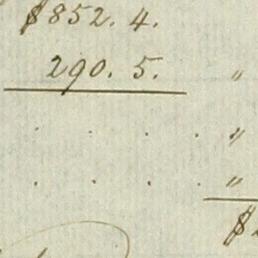 $852. 4.
290. 5. "
. . . . "
. . . . "
$